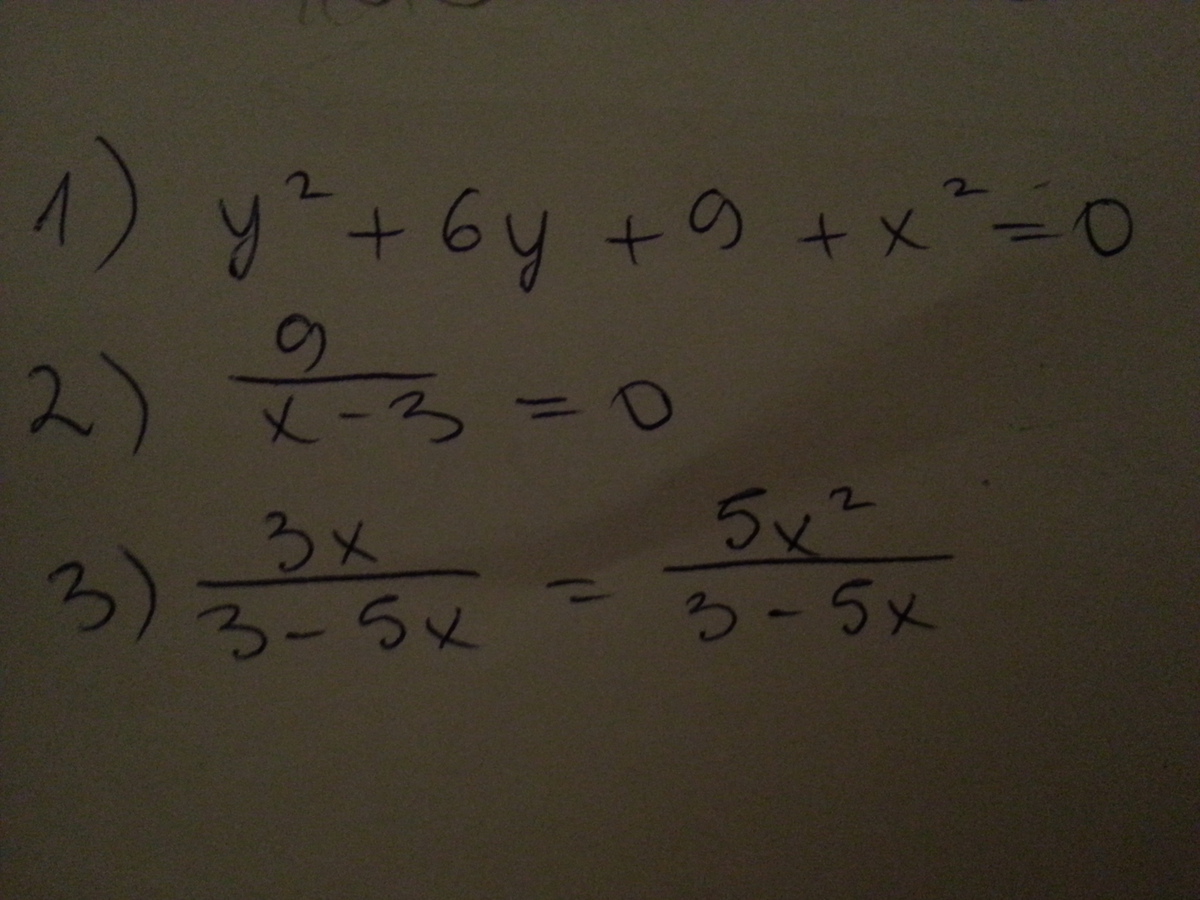 1) y² + 6y + 9 + x² = 0
2) 9/(x - 3) = 0
3) 3x/(3 - 5x) = 5x²/(3 - 5x)